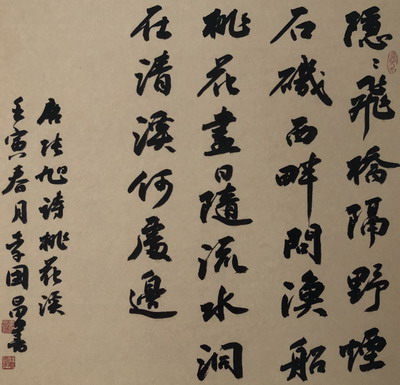 隱〻飛橋隔野煙
石磯西畔問漁船
桃花盡日隨流水洞
在清溪何處邊
唐張旭詩桃花溪
壬寅春月李國昌書